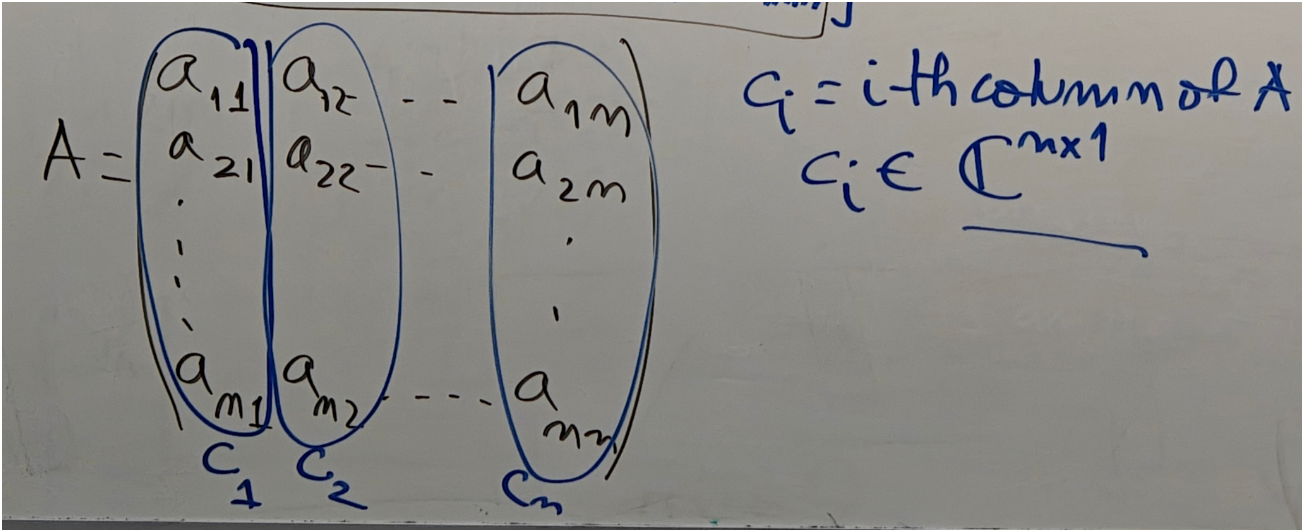 A = ( a₁₁ a₁₂ - - a₁ₙ
a₂₁ a₂₂ - - a₂ₙ
aₙ₁ aₙ₂ - - - - aₙₙ )
C₁ C₂ Cₙ
Cᵢ = i-th column of A
Cᵢ ∈ ℂⁿˣ¹